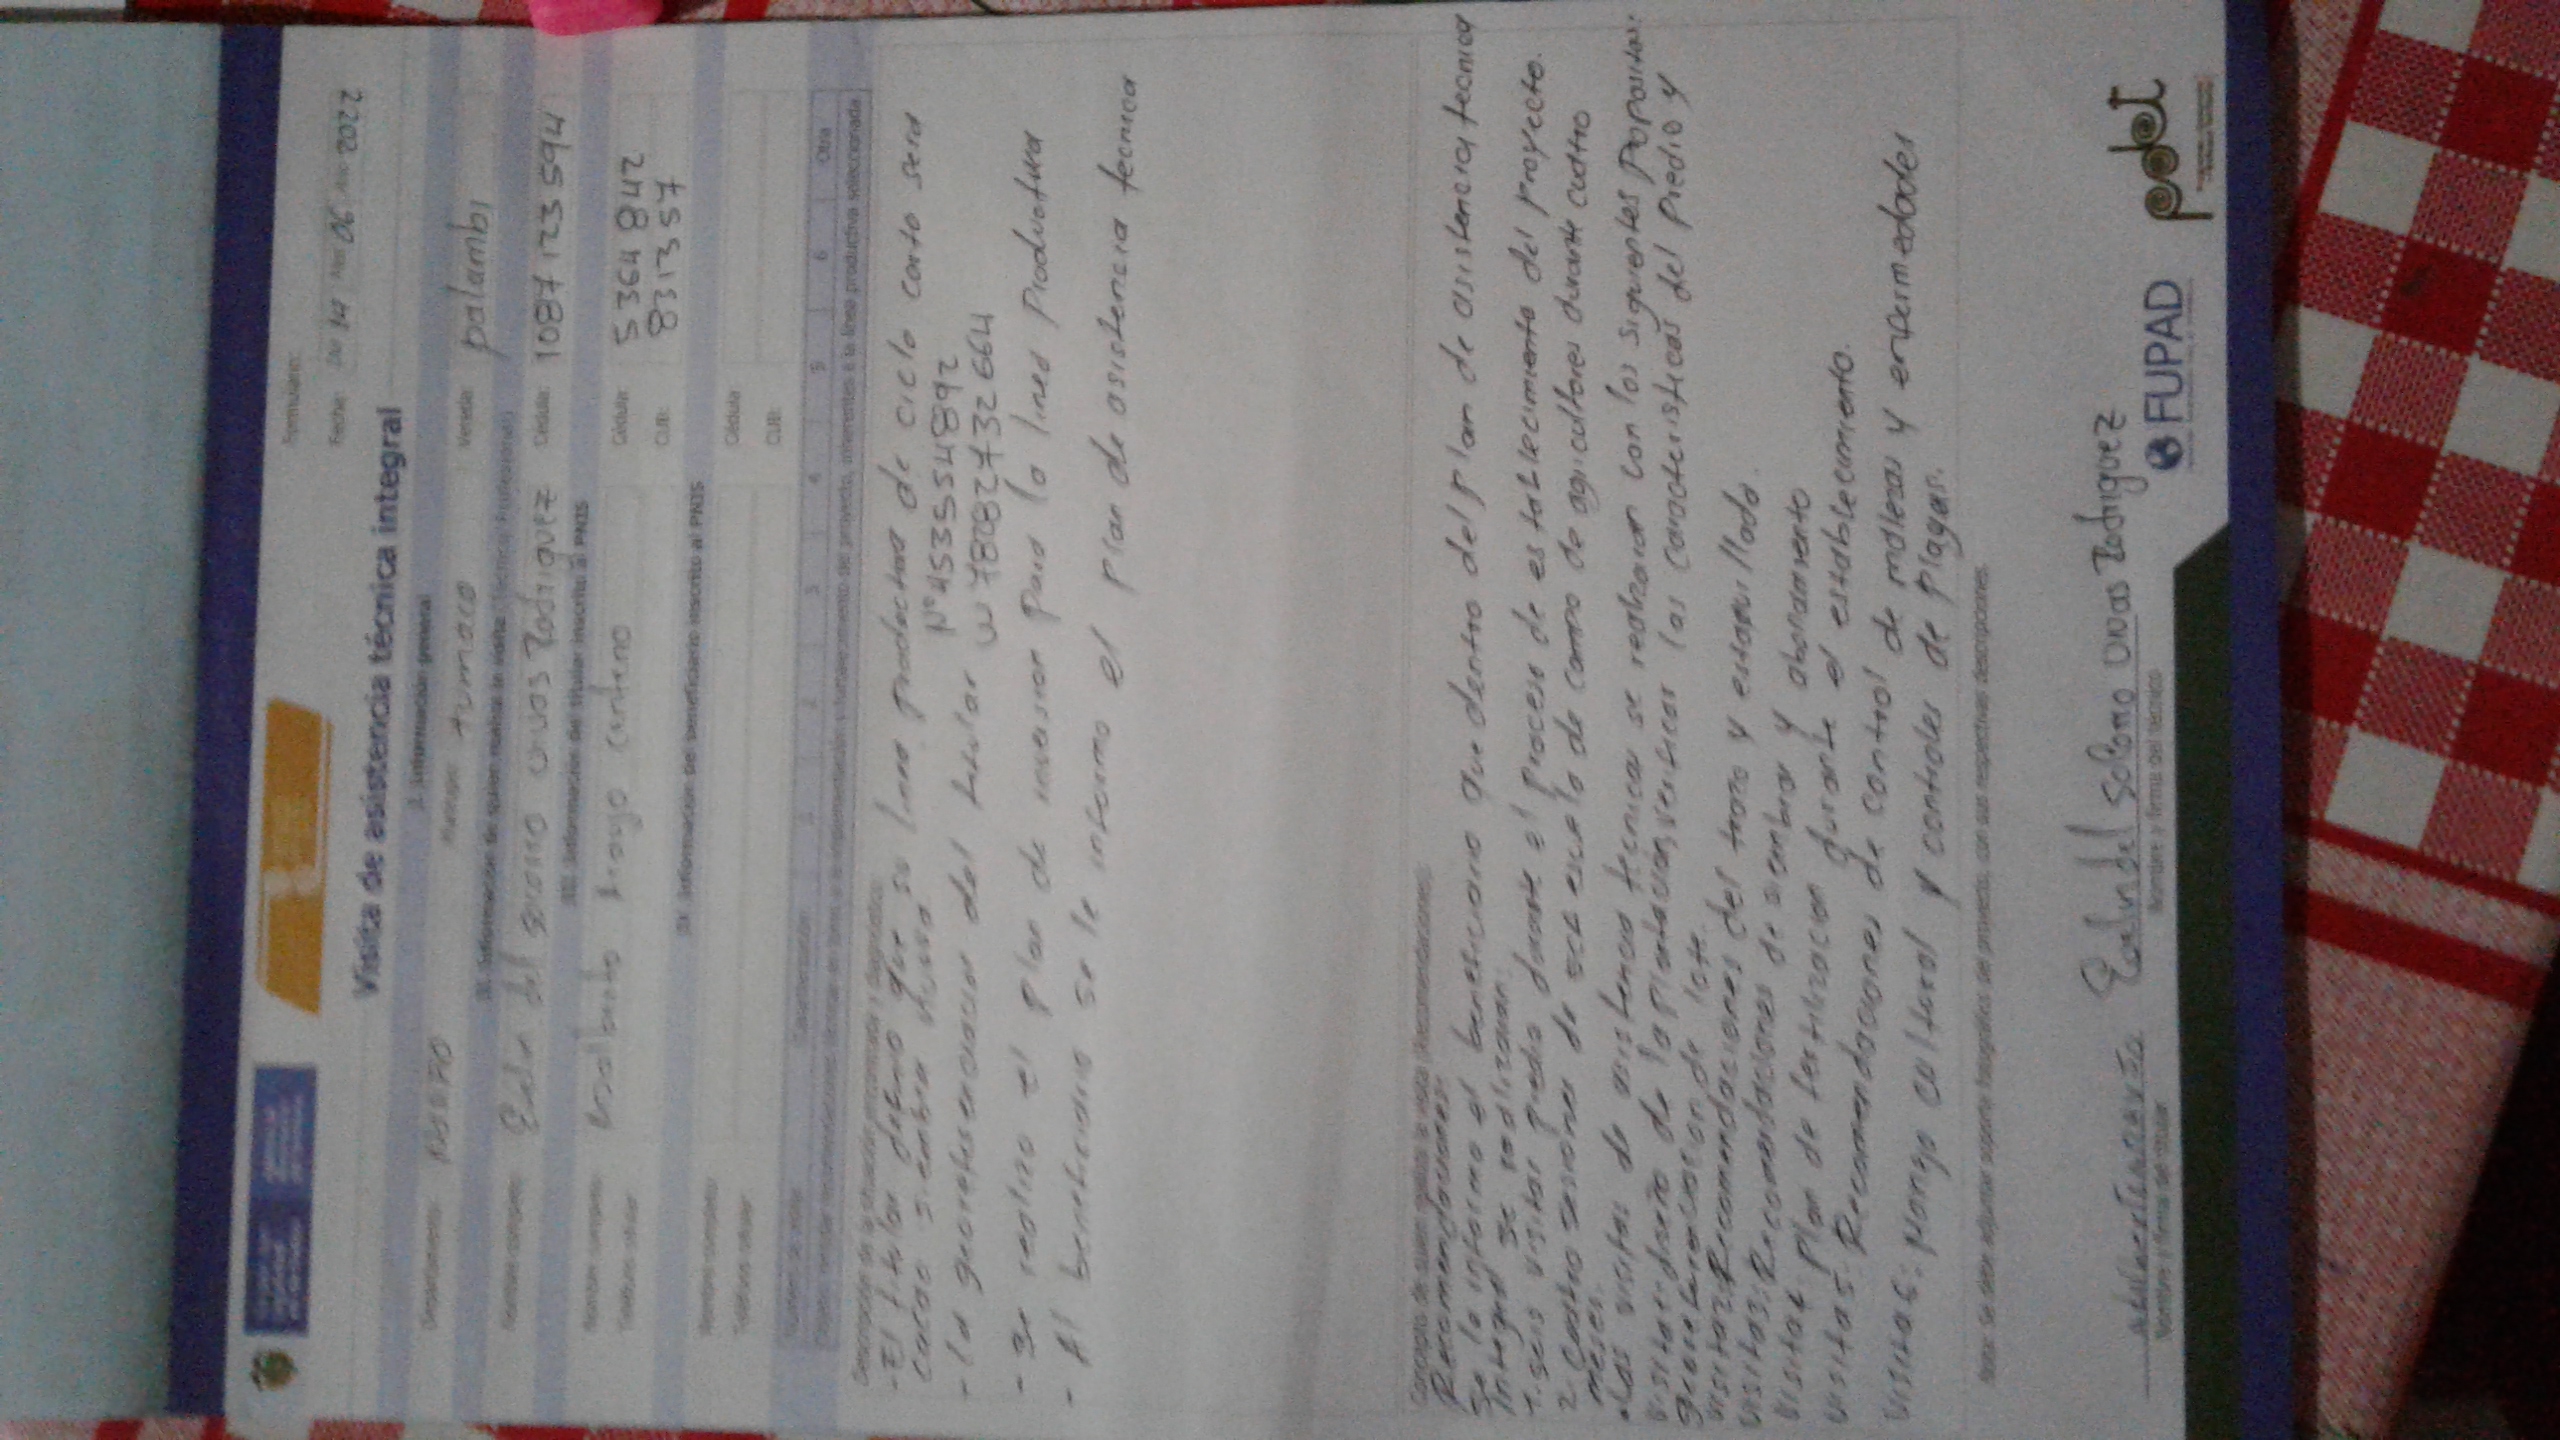 Formulario:
Fecha: Día 14 Mes 06 Año 2022
Visita de asistencia técnica integral
I. Información general
Departamento: Municipio: tumaco Vereda: palambi
Nombre completo: del socorro vivas Rodriguez Cédula: 1087123594
III. Información del titular inscrito al PNIS
Nombre completo: Arroyo Centeno Cédula: 5364842
Teléfono celular CUB: 831357
IV. Información de beneficiario inscrito al PNIS
Nombre completo: Cédula:
Teléfono celular: CUB:
1 2 3 4 5 6 Otra
- El titular definio que su linea productiva de ciclo corto sera
cacao siembra nueva N° 453554892
- la georeferenciacion del titular W 7808 2732664
- se realizo el plan de inversion para la linea productiva
- Al beneficiario se le informo el plan de asistencia tecnica
Recomendaciones:
Se le informo al beneficiario que dentro del plan de asistencia tecnica
integral se realizaran:
1. seis visitas predio durante el proceso de establecimiento del proyecto.
2. Cuatro sesiones de escuela de campo de agricultores durante cuatro
meses.
• Las visitas de asistencia tecnica se realizaran con los siguientes Propositos:
visita 1: diseño de la plantacion, verificar las caracteristicas del Predio y
georeferenciacion de lote.
visita 2: Recomendaciones del trazo y estaquillado.
visita 3: Recomendaciones de siembra y abonamiento
visita 4: Plan de fertilizacion durante el establecimiento.
visita 5: Recomendaciones de control de malezas y enfermedades
visita 6: Manejo cultural y controles de Plagas.
Nota: Se debe adjuntar soporte fotográfico del proyecto, con sus respectivas descripciones.
Nombre y firma del titular
del socorro vivas Rodriguez
Nombre y firma del técnico
FUPAD
pdet